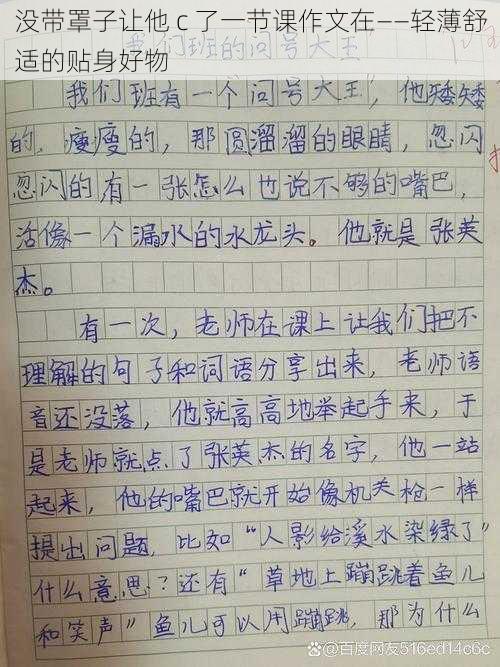 没带罩子让他 c 了一节课作文在——轻薄舒
适的贴身好物
我们班的问号大王
我们班有一个"问号大王",他矮矮
的,瘦瘦的,那圆溜溜的眼睛,忽闪
忽闪的有一张怎么也说不够的嘴巴,
活像一个漏水的水龙头。他就是张英
杰。
有一次,老师在课上让我们把不
理解的句子和词语分享出来,老师话
音还没落,他就高高地举起手来,于
是老师就点了张英杰的名字,他一站
起来,他的嘴巴就开始像机关枪一样
提出问题,比如"人影给溪水染绿了"
什么意思?还有"草地上蹦跳着鱼儿
和笑声"鱼儿可以用蹦跳,那为什么
百度网友516ed14c6c